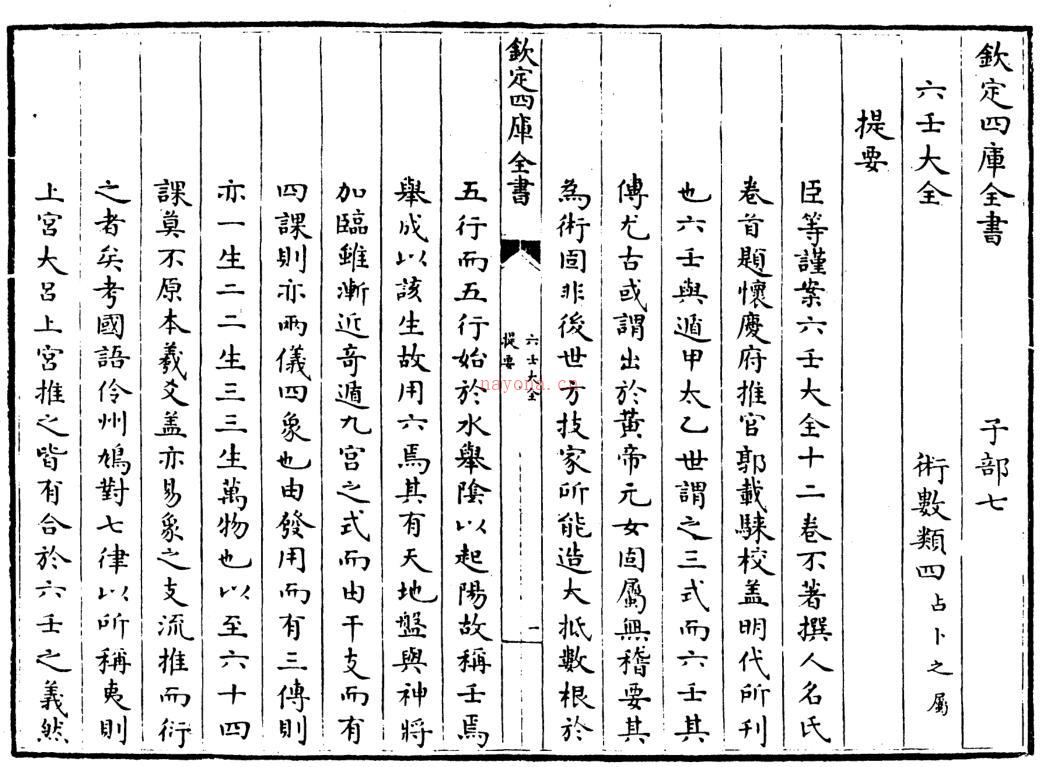 欽定四庫全書　子部七
六壬大全　術數類四占卜之屬
提要
臣等謹案六壬大全十二卷不著撰人名氏
卷首題懷慶府推官郭載騋校蓋明代所刊
也六壬與遁甲太乙世謂之三式而六壬其
傳尤古或謂出於黃帝元女固屬無稽要其
為術固非後世方技家所能造大抵數根於
欽定四庫全書
六壬大全
提要
一
五行而五行始於水舉陰以起陽故稱壬焉
舉成以該生故用六焉其有天地盤與神將
加臨雖漸近竒遁九宮之式而由干支而有
四課則亦兩儀四象也由發用而有三傳則
亦一生二二生三三生萬物也以至六十四
課莫不原本羲爻蓋亦易象之支流推而衍
之者矣考國語伶州鳩對七律以所稱夷則
上宮大呂上宮推之皆有合於六壬之義然
nayona.cn